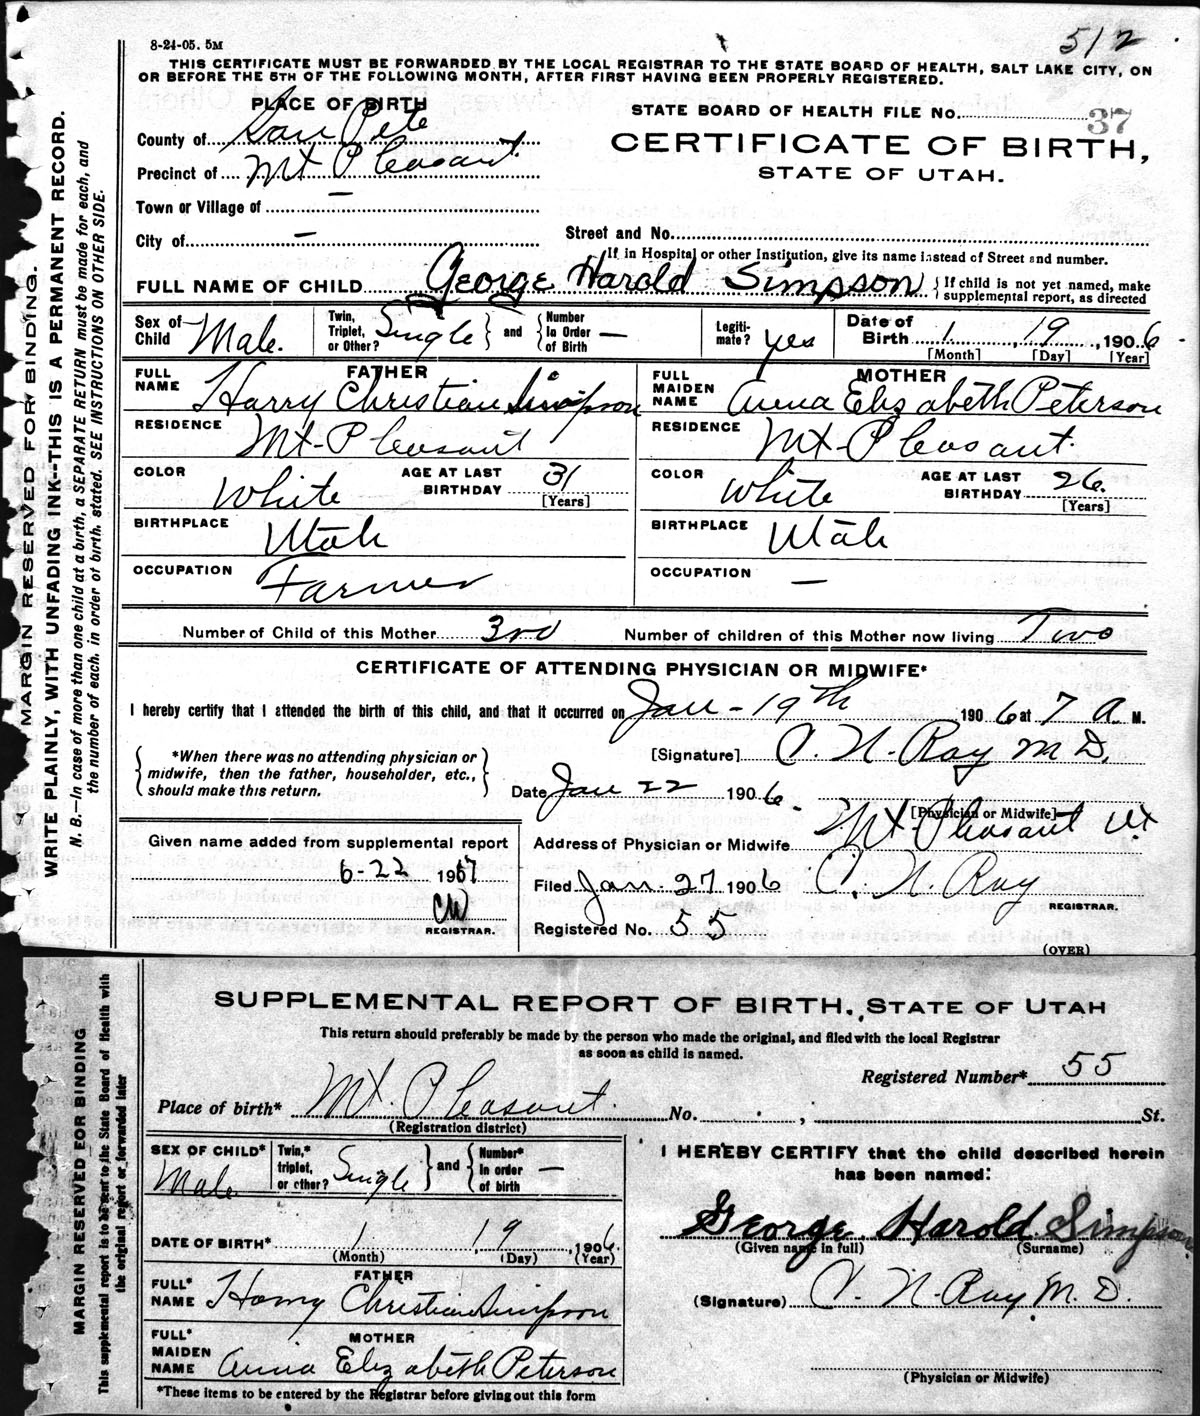 8-24-05. 5M
512
THIS CERTIFICATE MUST BE FORWARDED BY THE LOCAL REGISTRAR TO THE STATE BOARD OF HEALTH, SALT LAKE CITY, ON
OR BEFORE THE 5TH OF THE FOLLOWING MONTH, AFTER FIRST HAVING BEEN PROPERLY REGISTERED.
PLACE OF BIRTH
County of San Pete
Precinct of Mt Pleasant
Town or Village of —
City of —
STATE BOARD OF HEALTH FILE No. 37
CERTIFICATE OF BIRTH,
STATE OF UTAH.
Street and No.
If in Hospital or other Institution, give its name instead of Street and number.
FULL NAME OF CHILD George Harold Simpson { If child is not yet named, make
supplemental report, as directed
Sex of Child Male.
Twin, Triplet, or Other? Single } and { Number In Order of Birth —
Legitimate? yes
Date of Birth 1 , 19 , 1906
[Month] [Day] [Year]
FATHER
FULL NAME Harry Christian Simpson
RESIDENCE Mt-Pleasant
COLOR White AGE AT LAST BIRTHDAY 31 [Years]
BIRTHPLACE Utah
OCCUPATION Farmer
MOTHER
FULL MAIDEN NAME Anna Elizabeth Peterson
RESIDENCE Mt-Pleasant.
COLOR White AGE AT LAST BIRTHDAY 26. [Years]
BIRTHPLACE Utah
OCCUPATION —
Number of Child of this Mother 3rd Number of children of this Mother now living Two
CERTIFICATE OF ATTENDING PHYSICIAN OR MIDWIFE*
I hereby certify that I attended the birth of this child, and that it occurred on Jan - 19th 1906 at 7 A M.
{ *When there was no attending physician or
midwife, then the father, householder, etc.,
should make this return. }
[Signature] C. N. Ray M D.
Date Jan 22 1906.
[Physician or Midwife]
Address of Physician or Midwife Mt-Pleasant Ut
Given name added from supplemental report
6-22 1917
CW
REGISTRAR.
Filed Jan. 27 1906 C. N. Ray
REGISTRAR.
Registered No. 55
(OVER)
MARGIN RESERVED FOR BINDING.
WRITE PLAINLY, WITH UNFADING INK--THIS IS A PERMANENT RECORD.
N. B.—In case of more than one child at a birth, a SEPARATE RETURN must be made for each, and
the number of each, in order of birth, stated. SEE INSTRUCTIONS ON OTHER SIDE.
SUPPLEMENTAL REPORT OF BIRTH, STATE OF UTAH
This return should preferably be made by the person who made the original, and filed with the local Registrar
as soon as child is named.
Registered Number* 55
Place of birth* Mt. Pleasant. No. St.
(Registration district)
SEX OF CHILD* Male
Twin,* triplet, or other? Single } and { Number* in order of birth —
DATE OF BIRTH* 1 , 19 , 1906.
(Month) (Day) (Year)
FATHER
FULL* NAME Harry Christian Simpson
MOTHER
FULL* MAIDEN NAME Anna Elizabeth Peterson
*These items to be entered by the Registrar before giving out this form
I HEREBY CERTIFY that the child described herein
has been named:
George Harold Simpson
(Given name in full) (Surname)
(Signature) C. N. Ray M. D.
(Physician or Midwife)
MARGIN RESERVED FOR BINDING
This supplemental report is to be sent to the State Board of Health with
the original report or forwarded later